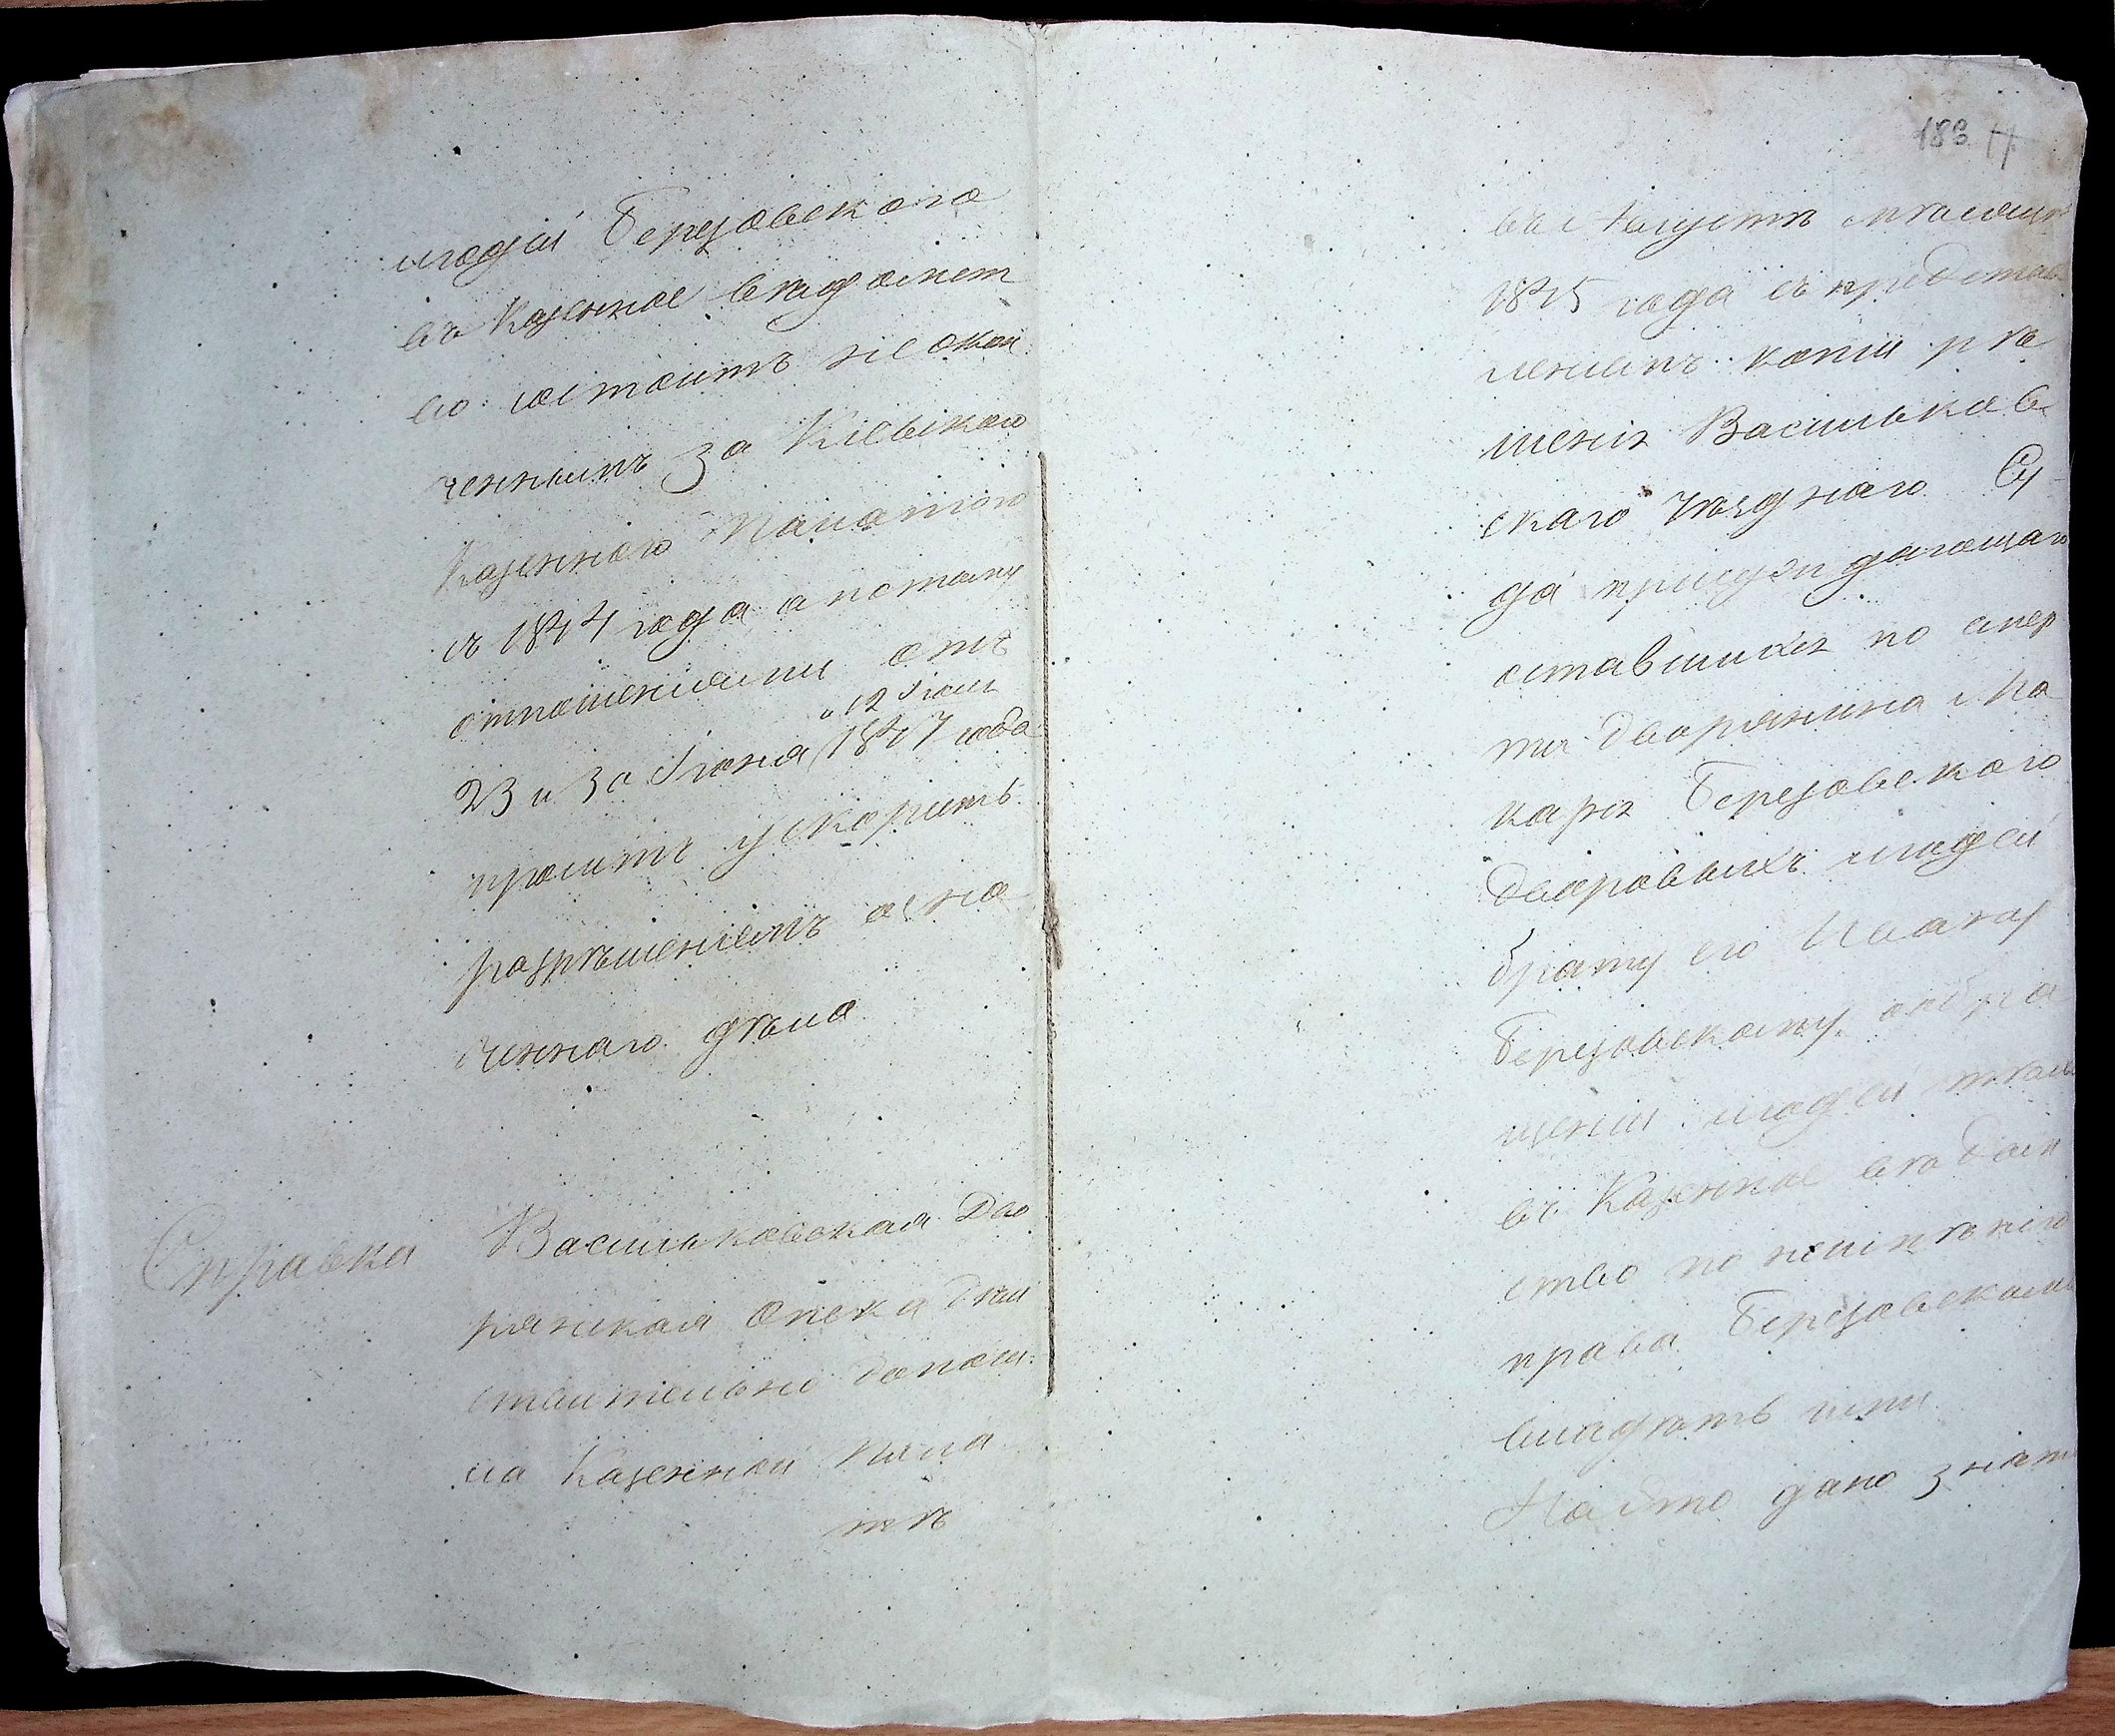 людей Березовскаго
въ Казенное вѣдомст
во состоитъ неокон
ченнымъ за Кіевскою
Казенною Палатою
съ 1844 года а потому
отношеніями отъ
„ 12 Іюля
23 и 30 Іюня 1847 года
проситъ ускорить
разрѣшеніемъ озна
ченнаго дѣла
Справка Васильковская Дво
рянская Опека дѣй
ствительно доноси
ла Казенной Пала
тѣ
183 17
въ Августѣ мѣсяцѣ
1845 года съ представ
леніемъ копіи рѣ
шенія Васильков
скаго Уѣзднаго Су
да присуждающаго
оставшихъ по смер
ти дворянина Ма
каря Березовскаго
дворовыхъ людей
брату его Ивану
Березовскому, обра
щеніи людей
въ Казенное вѣдом
ство по неимѣнію
права Березовскому
владѣть ими.
На это дано знать